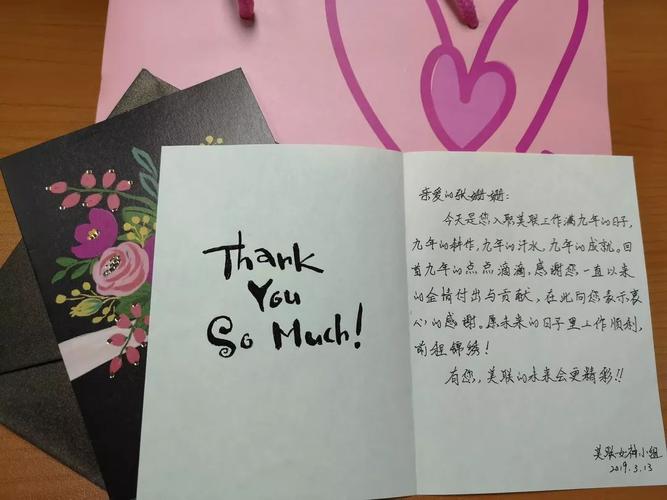 Thank
You
So Much!
亲爱的张姗姗:
今天是您入职美联工作满九年的日子,
九年的耕作,九年的汗水,九年的成就。回
首九年的点点滴滴,感谢您一直以来
的全情付出与贡献,在此向您表示衷
心的感谢。愿未来的日子里工作顺利,
前程锦绣!
有您,美联的未来会更精彩!!
美联女神小组
2019.3.13